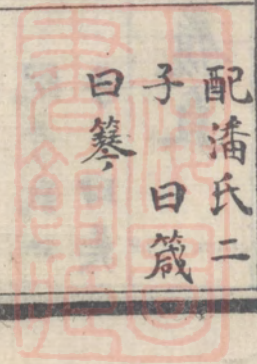 配潘氏二
子 曰箴
曰篸